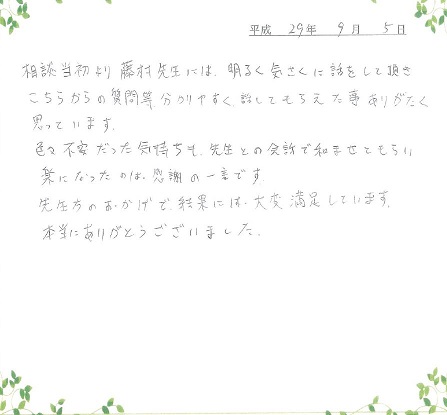 平成 29年 9月 5日
相談当初より藤村先生には、明るく気さくに話をして頂き
こちらからの質問等、分かりやすく、話してもらえた事ありがたく
思っています。
色々不安だった気持ちも、先生との会話で和ませてもらい
楽になったのは、感謝の一言です。
先生方のおかげで、結果には、大変満足しています。
本当にありがとうございました。